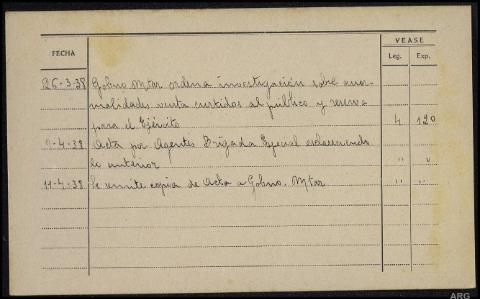 VEASE
FECHA Leg. Exp.
26-3-38 Gobno. Mtar ordena investigación sobre anor-
malidades venta curtidos al publico y reserva
para el Ejército 4 120
9-4-38 Acta por Agentes Brigada Especial esclareciendo
lo anterior " "
11-4-38 Se remite copia de Acta a Gobno. Mtar " "
ARG